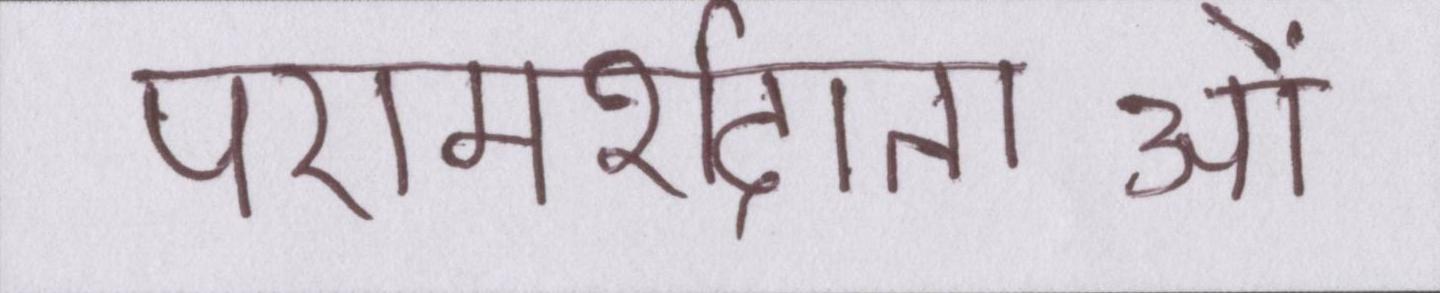 परामर्शदाताओं